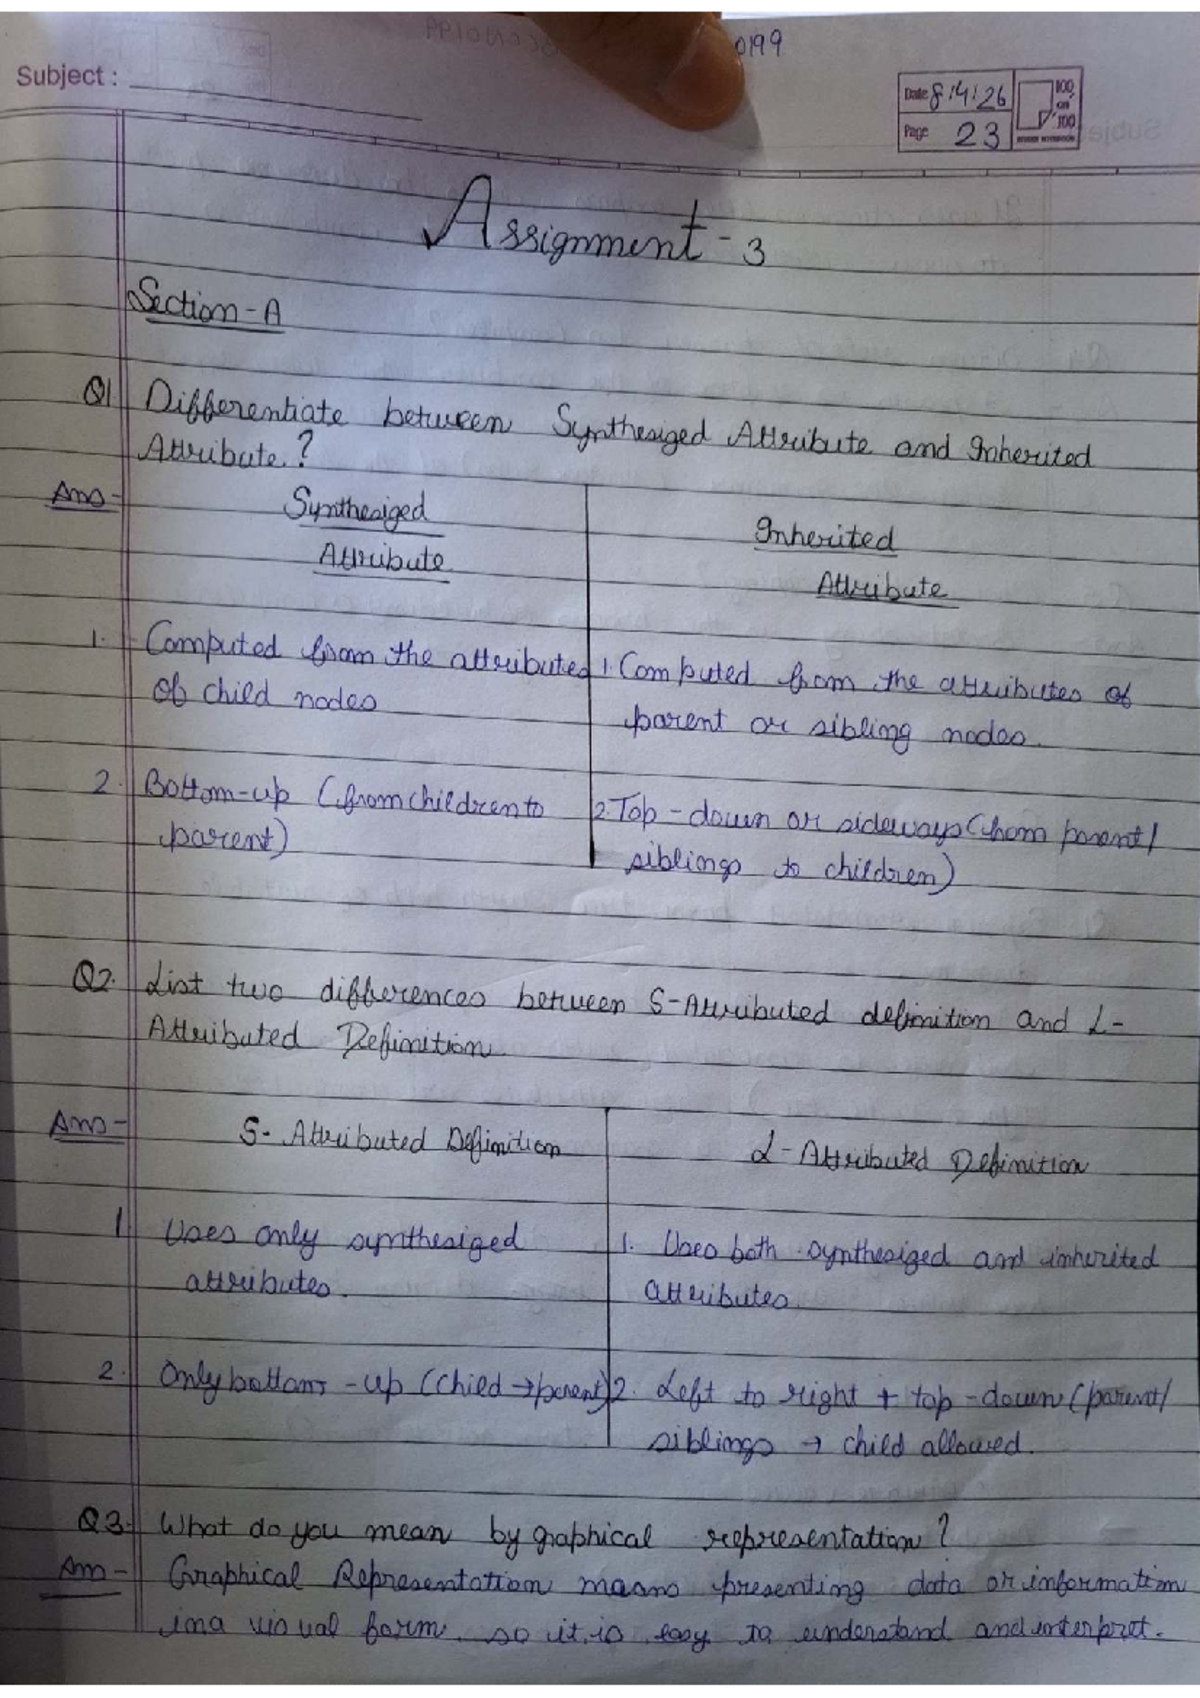 0199
Subject :
Date 8/4/26
Page 23
Assignment - 3
Section-A
Q1 Differentiate between Synthesized Attribute and Inherited
Attribute.?
Ans -
Synthesized
Attribute
1. Computed from the attributes
of child nodes
2. Bottom-up (from children to
parent)
Inherited
Attribute
1. Computed from the attributes of
parent or sibling nodes.
2. Top-down or sideways (from parent/
siblings to children)
Q2. List two differences between S-Attributed definition and L-
Attributed Definition
Ans -
S- Attributed Definition
1 Uses only synthesized
attributes.
2. Only bottom-up (child → parent)
L-Attributed Definition
1. Uses both synthesized and inherited
attributes
2. Left to right + top-down (parent/
siblings → child allowed.
Q3. What do you mean by graphical representation?
Ans - Graphical Representation means presenting data or information
in a visual form. so it is easy to understand and interpret.